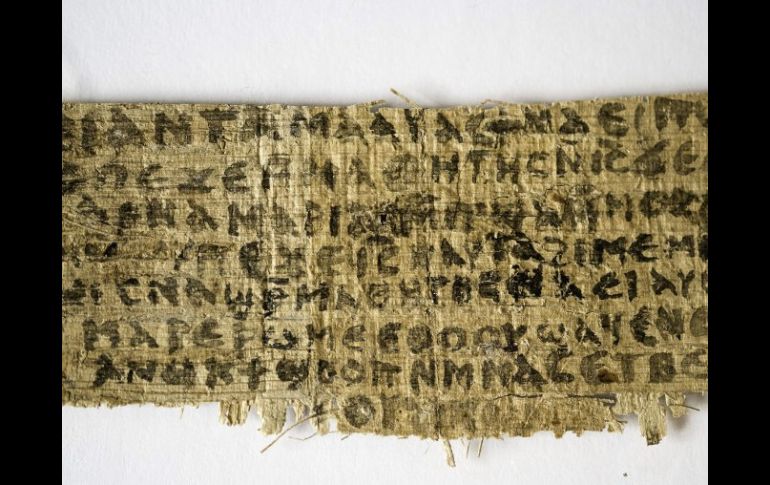 ⲉⲓ ⲁⲛ ⲧⲁⲙⲁⲁⲩ ⲁⲥϯ ⲛⲁⲉⲓ
ⲡⲉϫⲉ ⲙⲙⲁⲑⲏⲧⲏⲥ ⲛⲓⲥ ϫⲉ
ⲁⲣⲛⲁ ⲙⲁⲣⲓⲁⲙ ⲙⲡϣⲁ ⲙⲙⲟⲥ
ⲡⲉϫⲉ ⲓⲥ ⲛⲁⲩ ⲧⲁϩⲓⲙⲉ ⲙⲛ
ⲥⲛⲁϣⲣⲙⲁⲑⲏⲧⲏⲥ ⲛⲁⲉⲓ ⲁⲩ
ⲙⲁⲣⲉⲣⲱⲙⲉ ⲉⲑⲟⲟⲩ ϣⲁϥⲉ ⲛⲉ
ⲁⲛⲟⲕ ϯϣⲟⲟⲡ ⲛⲙⲙⲁⲥ ⲉⲧⲃⲉ